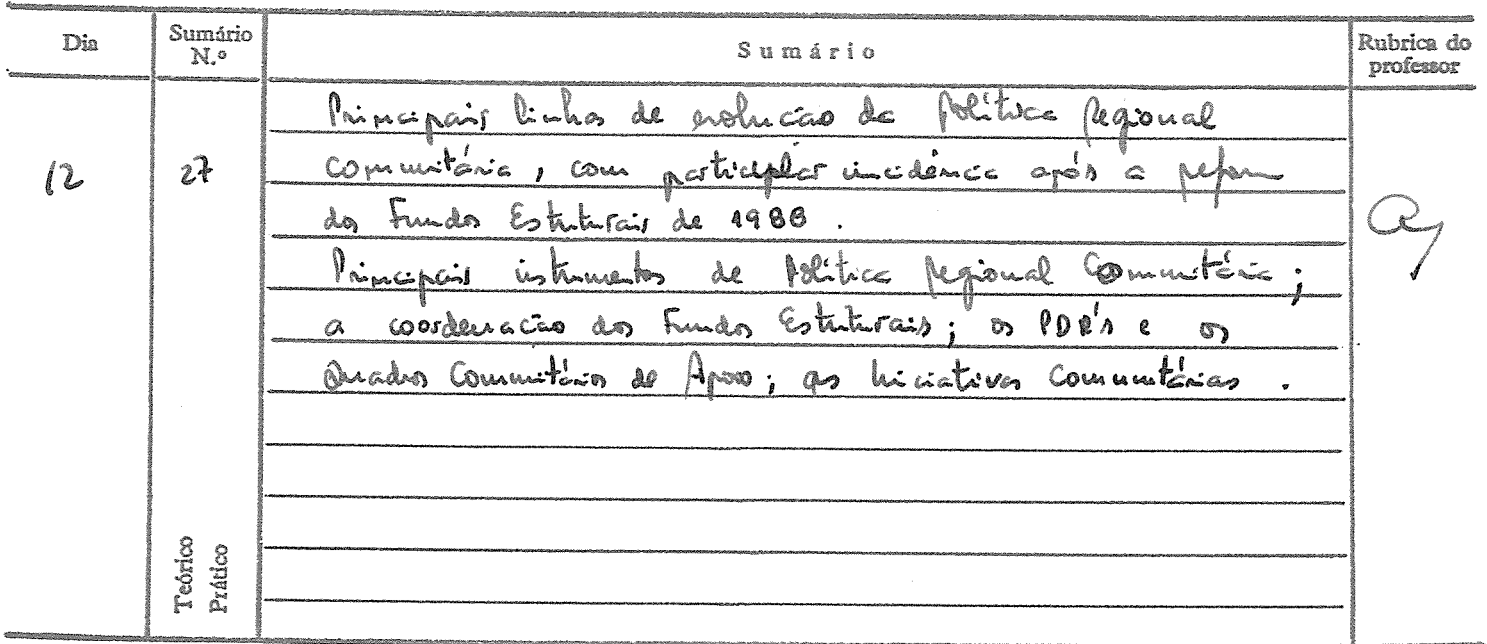 Dia
Sumário N.º
Sumário
Rubrica do professor
12
27
Principais linhas de evolução da Política Regional
Comunitária, com particular incidência após a reforma
dos Fundos Estruturais de 1988.
Principais instrumentos de Política Regional Comunitária;
a coordenação dos Fundos Estruturais; os PDR's e os
Quadros Comunitários de Apoio; as Iniciativas Comunitárias.
Teórico
Prático